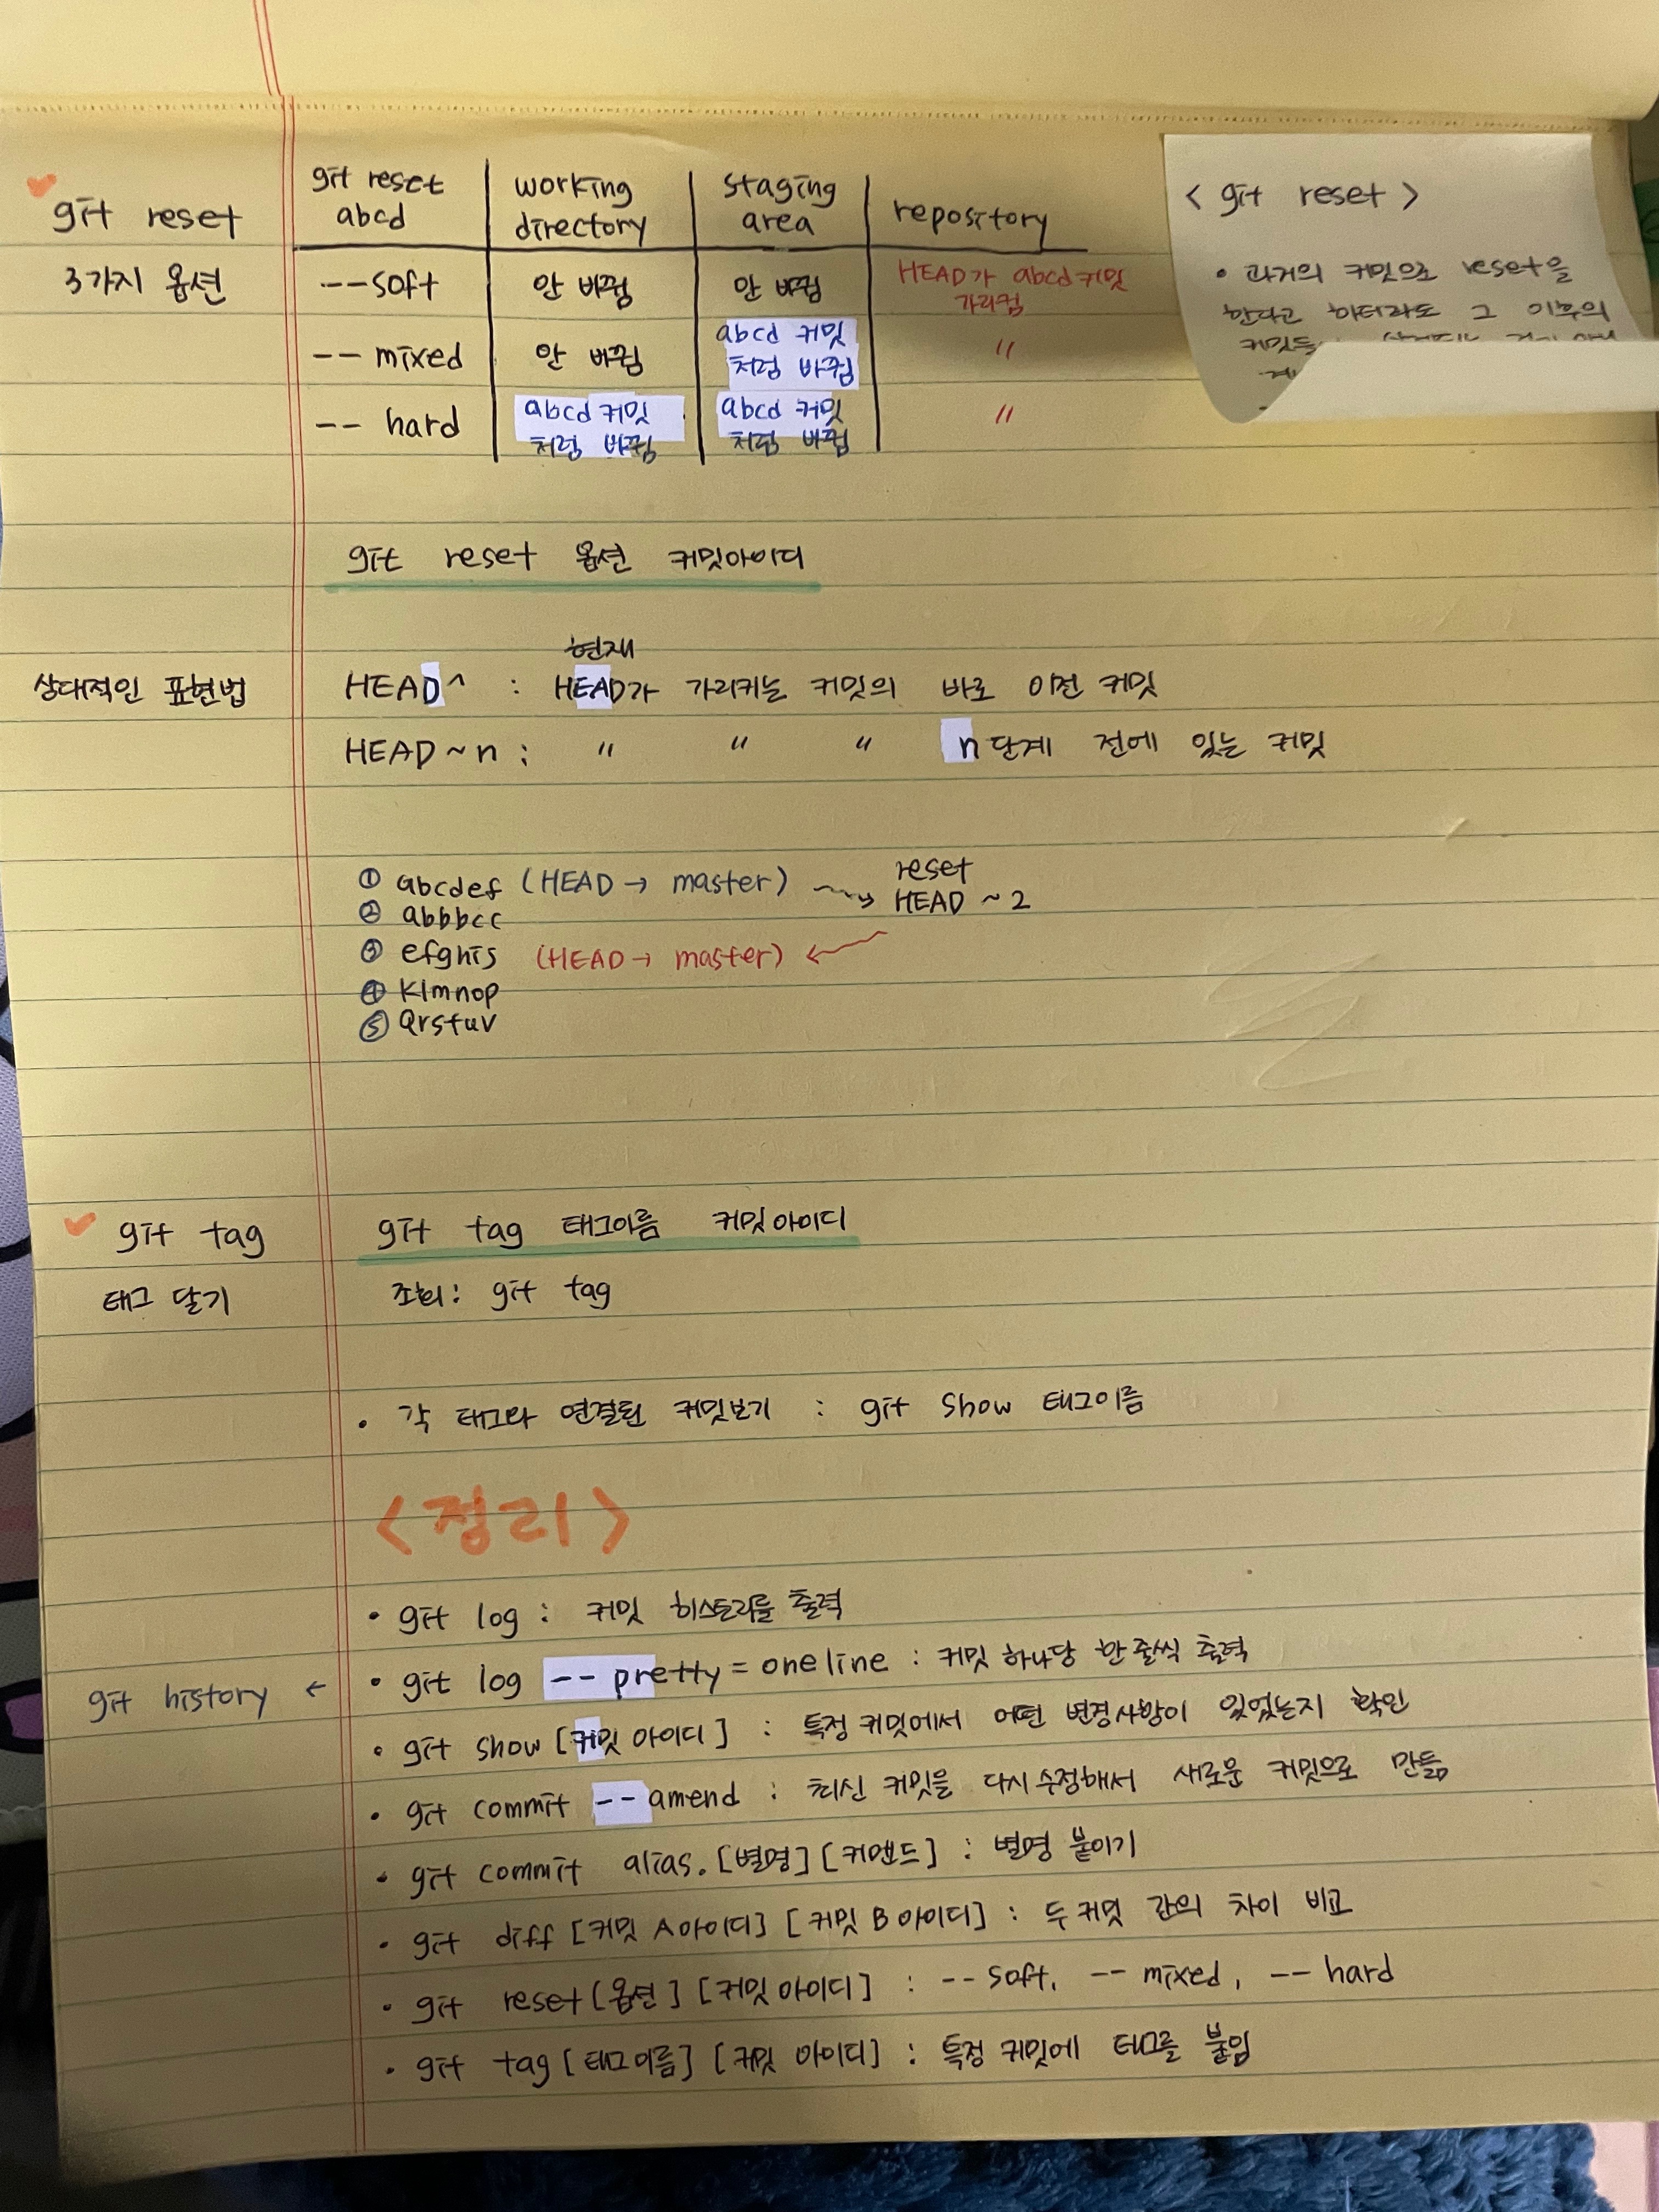 git reset
3가지 옵션
git reset abcd | working directory | staging area | repository
--soft | 안 바뀜 | 안 바뀜 | HEAD가 abcd 커밋 가리킴
-- mixed | 안 바뀜 | abcd 커밋 처럼 바뀜 | "
-- hard | abcd 커밋 처럼 바뀜 | abcd 커밋 처럼 바뀜 | "
< git reset >
• 과거의 커밋으로 reset을
한다고 하더라도 그 이후의
커밋들
git reset 옵션 커밋아이디
상대적인 표현법
현재
HEAD^ : HEAD가 가리키는 커밋의 바로 이전 커밋
HEAD~n : " " " n단계 전에 있는 커밋
① abcdef (HEAD → master) → reset HEAD ~ 2
② abbbcc
③ efghis (HEAD → master) ←
④ Klmnop
⑤ Qrstuv
git tag
태그 달기
git tag 태그이름 커밋아이디
조회: git tag
• 각 태그와 연결된 커밋보기 : git show 태그이름
<정리>
• git log : 커밋 히스토리를 출력
git history ←
• git log --pretty = oneline : 커밋 하나당 한 줄씩 출력
• git show [커밋 아이디] : 특정 커밋에서 어떤 변경사항이 있었는지 확인
• git commit --amend : 최신 커밋을 다시 수정해서 새로운 커밋으로 만듦
• git commit alias.[별명] [커맨드] : 별명 붙이기
• git diff [커밋 A 아이디] [커밋 B 아이디] : 두 커밋 간의 차이 비교
• git reset [옵션] [커밋 아이디] : -- soft, -- mixed, -- hard
• git tag [태그이름] [커밋 아이디] : 특정 커밋에 태그를 붙임